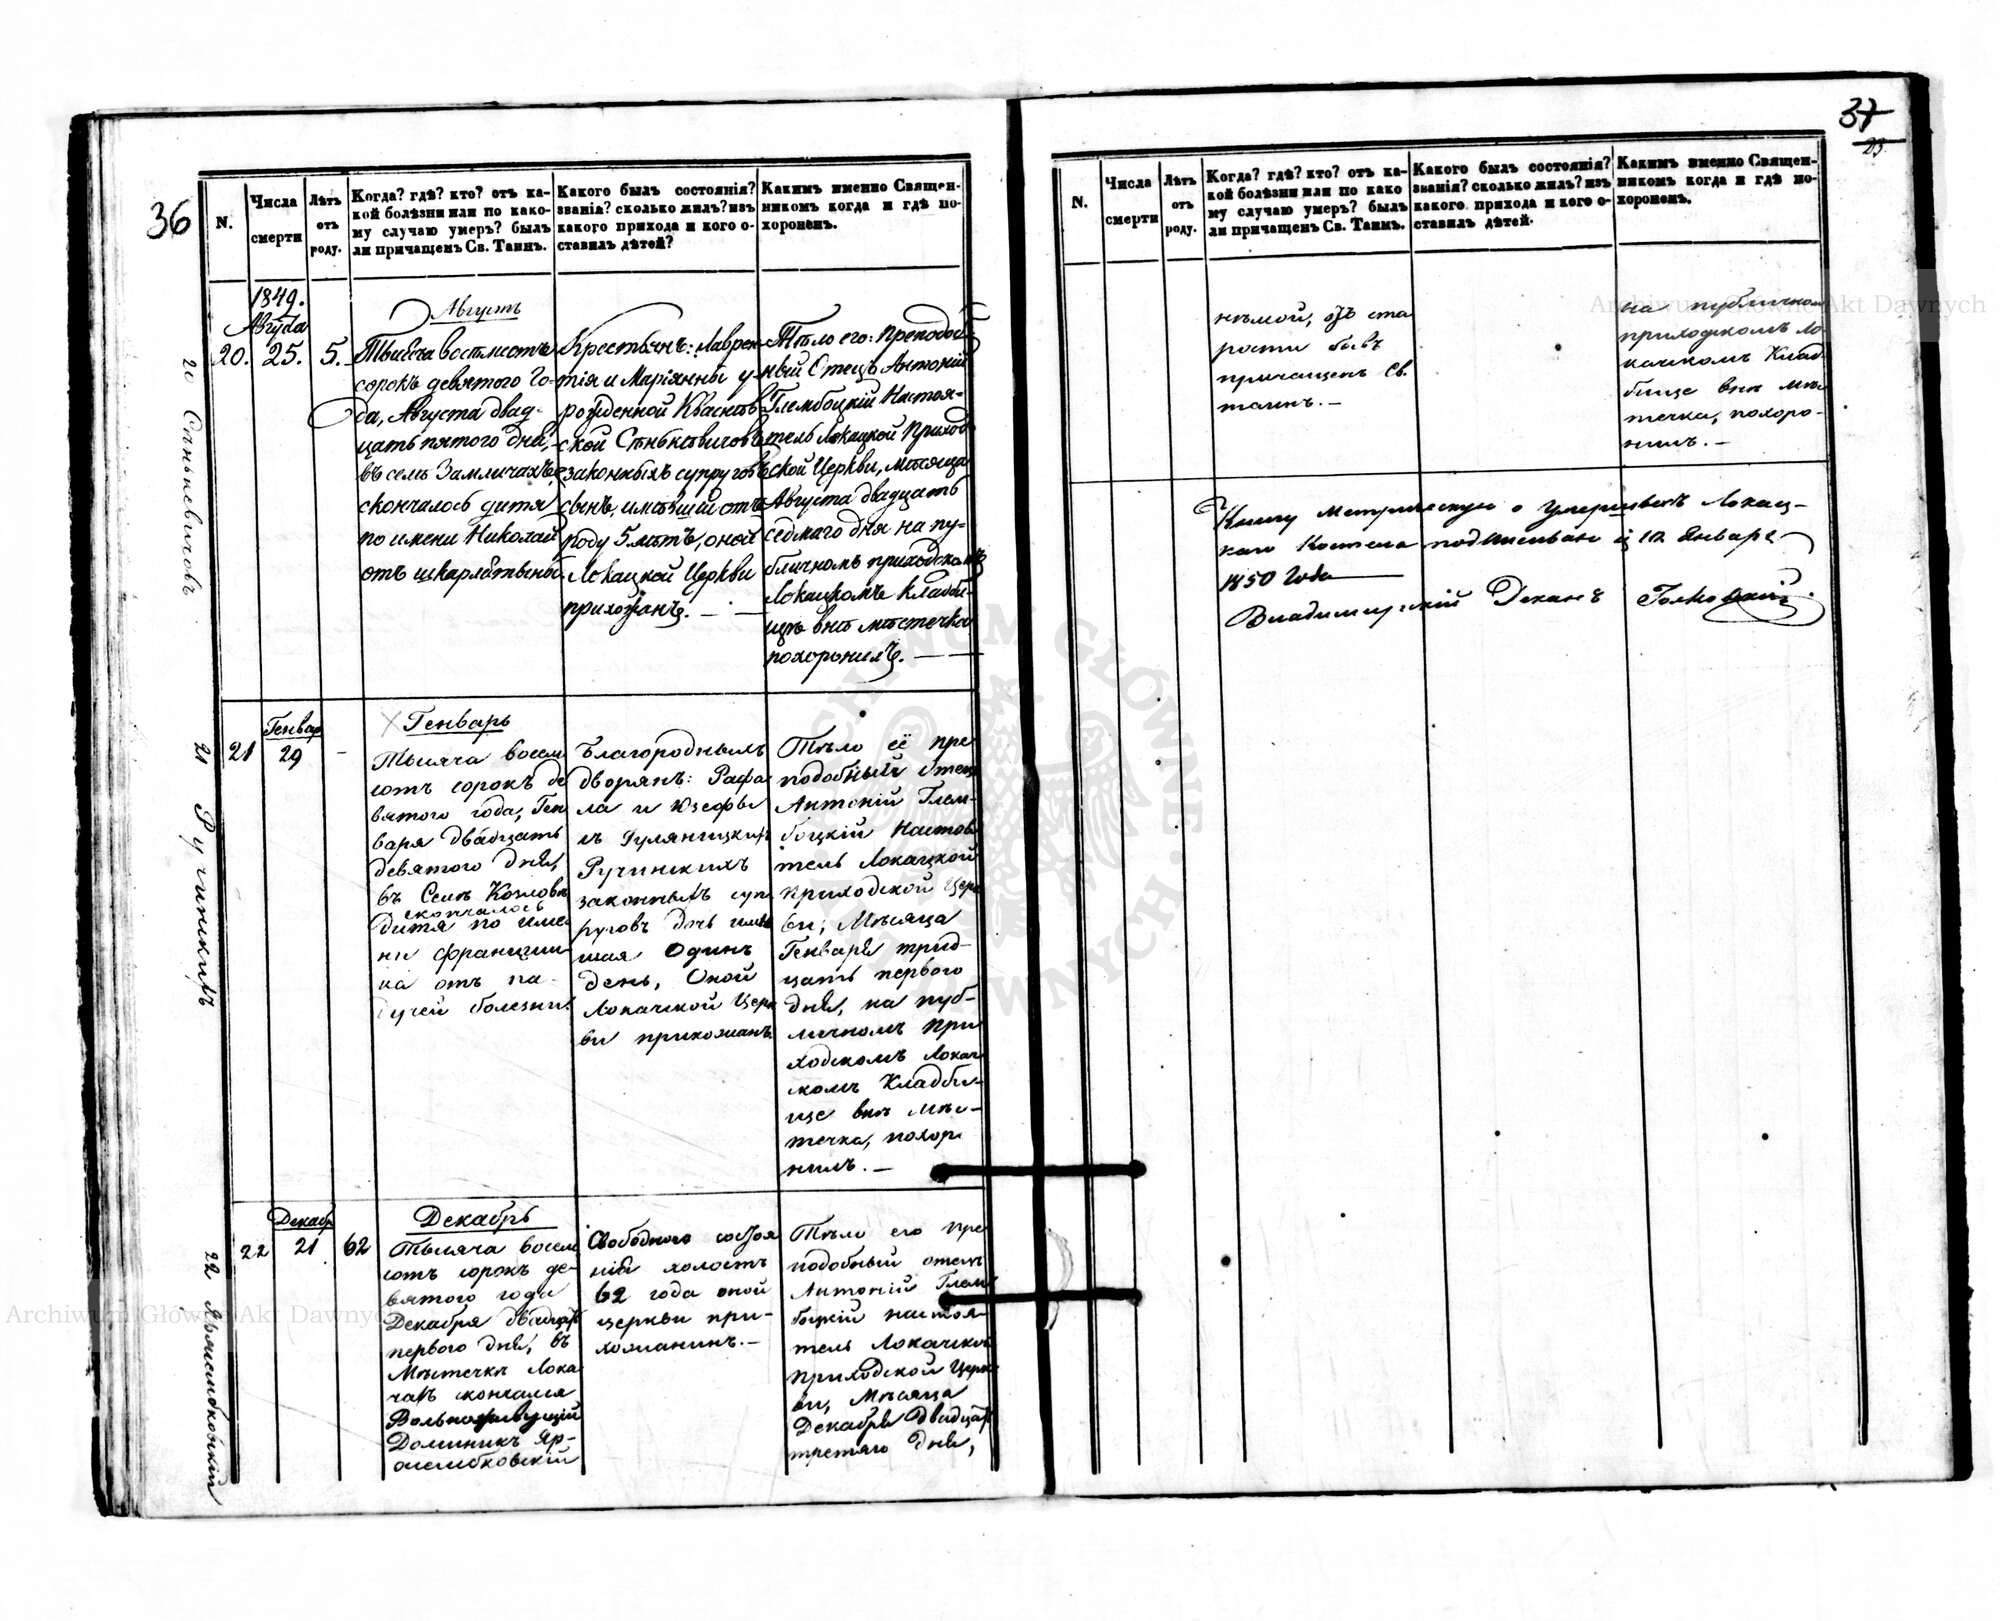 36
N.
Числа смерти
Лѣтъ отъ роду.
Когда? гдѣ? кто? отъ ка-
кой болѣзни или по како-
му случаю умеръ? былъ
ли причащенъ Св. Таинъ.
Какого былъ состоянія?
званія? сколько жилъ? изъ
какого прихода и кого о-
ставилъ дѣтей?
Какимъ именно Священ-
никомъ когда и гдѣ по-
хороненъ.
20 Станкевичовъ
1849.
Августа
20. 25. 5.
Августъ
Тысяча восемьсотъ
сорокъ девятого Го-
да, Августа двад-
цать пятого дня,
въ селѣ Замличахъ,
скончалось дитя
по имени Николай
отъ шкарлятыны
Крестьянъ: Лаврен-
тія и Маріянны у-
рожденной Кваснѣв-
ской Станкевичовъ
законныхъ супруговъ
сынъ, имѣвшій отъ
роду 5 лѣтъ, оной
Локацкой Церкви
прихожанъ. —
Тѣло его: Преподоб-
ный Отецъ Антоній
Глембоцкій Настоя-
тель Локацкой Приход-
ской Церкви, мѣсяца
Августа двадцать
седмаго дня на пу-
бличномъ приходскомъ
Локацкомъ Кладби-
щѣ внѣ мѣстечка
похоронилъ. —
21 Ручинскихъ
21
Генвар
29
Генварь
Тысяча восем
сотъ сорокъ де
вятого года, Ген
варя двадцать
девятого дня,
въ Селѣ Козловѣ
скончалось
дитя по име
ни Францишка
отъ па-
дучей болезни.
Благородныхъ
дворянъ: Рафа
ла и Юзефы
Ручинскихъ
законныхъ суп
руговъ дочь имѣв
шая Одинъ
день, Оной
Локачкой Церк
ви прихожанъ.
Тѣло её пре
подобный отецъ
Антоній Глем-
боцкій Настоя
тель Локацкой
приходской Церк
ви, Мѣсяца
Генваря трид-
цать первого
дня, на пуб-
личномъ При
ходскомъ Локач
комъ Кладби-
ще внѣ мѣс-
течка, похоро
нилъ. —
22
22
Декабр
21 62
Декабрь
Тысяча восем
сотъ сорокъ де-
вятого года
Декабря двадцать
первого дня, въ
Мѣстечкѣ Лока
чахъ скончался
Вольноживущій
Доминикъ Яр-
Свободного состоя
нія холостъ
62 года оной
церкви при-
хожанинъ. —
Тѣло его пре
подобный отецъ
Антоній Глем
боцкій настоя-
тель Локачкой
Приходской Церк
ви, Мѣсяца
Декабря Двадцать
третяго дня,
37
23
N.
Числа смерти
Лѣтъ отъ роду.
Когда? гдѣ? кто? отъ ка-
кой болѣзни или по како
му случаю умеръ? былъ
ли причащенъ Св. Таинъ.
Какого былъ состоянія?
званія? сколько жилъ? изъ
какого прихода и кого о-
ставилъ дѣтей.
Какимъ именно Священ-
никомъ когда и гдѣ по-
хороненъ.
отъ ста
рости бывъ
причащенъ Св.
таинъ. —
на публичном
приходскомъ Ло
качкомъ Клад
бище внѣ мѣс
течка, похоро-
нилъ. —
Книгу Метрическую о умершихъ Локац-
каго Костела 10 Января
1850 Года
Владимирскій Деканъ
Archiwum Główne Akt Dawnych
Archiwum Główne Akt Dawnych
ARCHIWUM GŁÓWNE AKT DAWNYCH